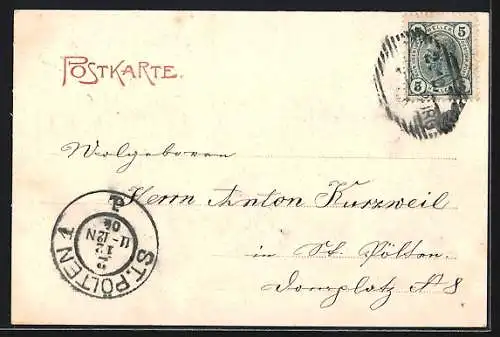 POSTKARTE.
5 5
Wolgeboren
Herrn Anton Kurzweil
in St. Pölten
Domplatz № 8
ST. PÖLTEN 1
11-12N